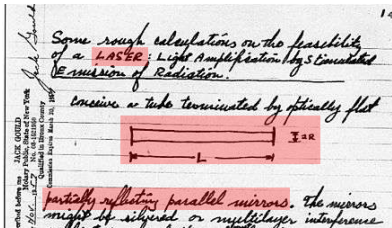 Some rough calculations on the feasibility
of a LASER: Light Amplification by Stimulated
Emission of Radiation.
Conceive a tube terminated by optically flat
2R
L
partially reflecting parallel mirrors. The mirrors
might be silvered or multilayer interference
JACK GOULD
Notary Public, State of New York
Qualified in Bronx County
Commission Expires March 30, 1959
Jack Gould